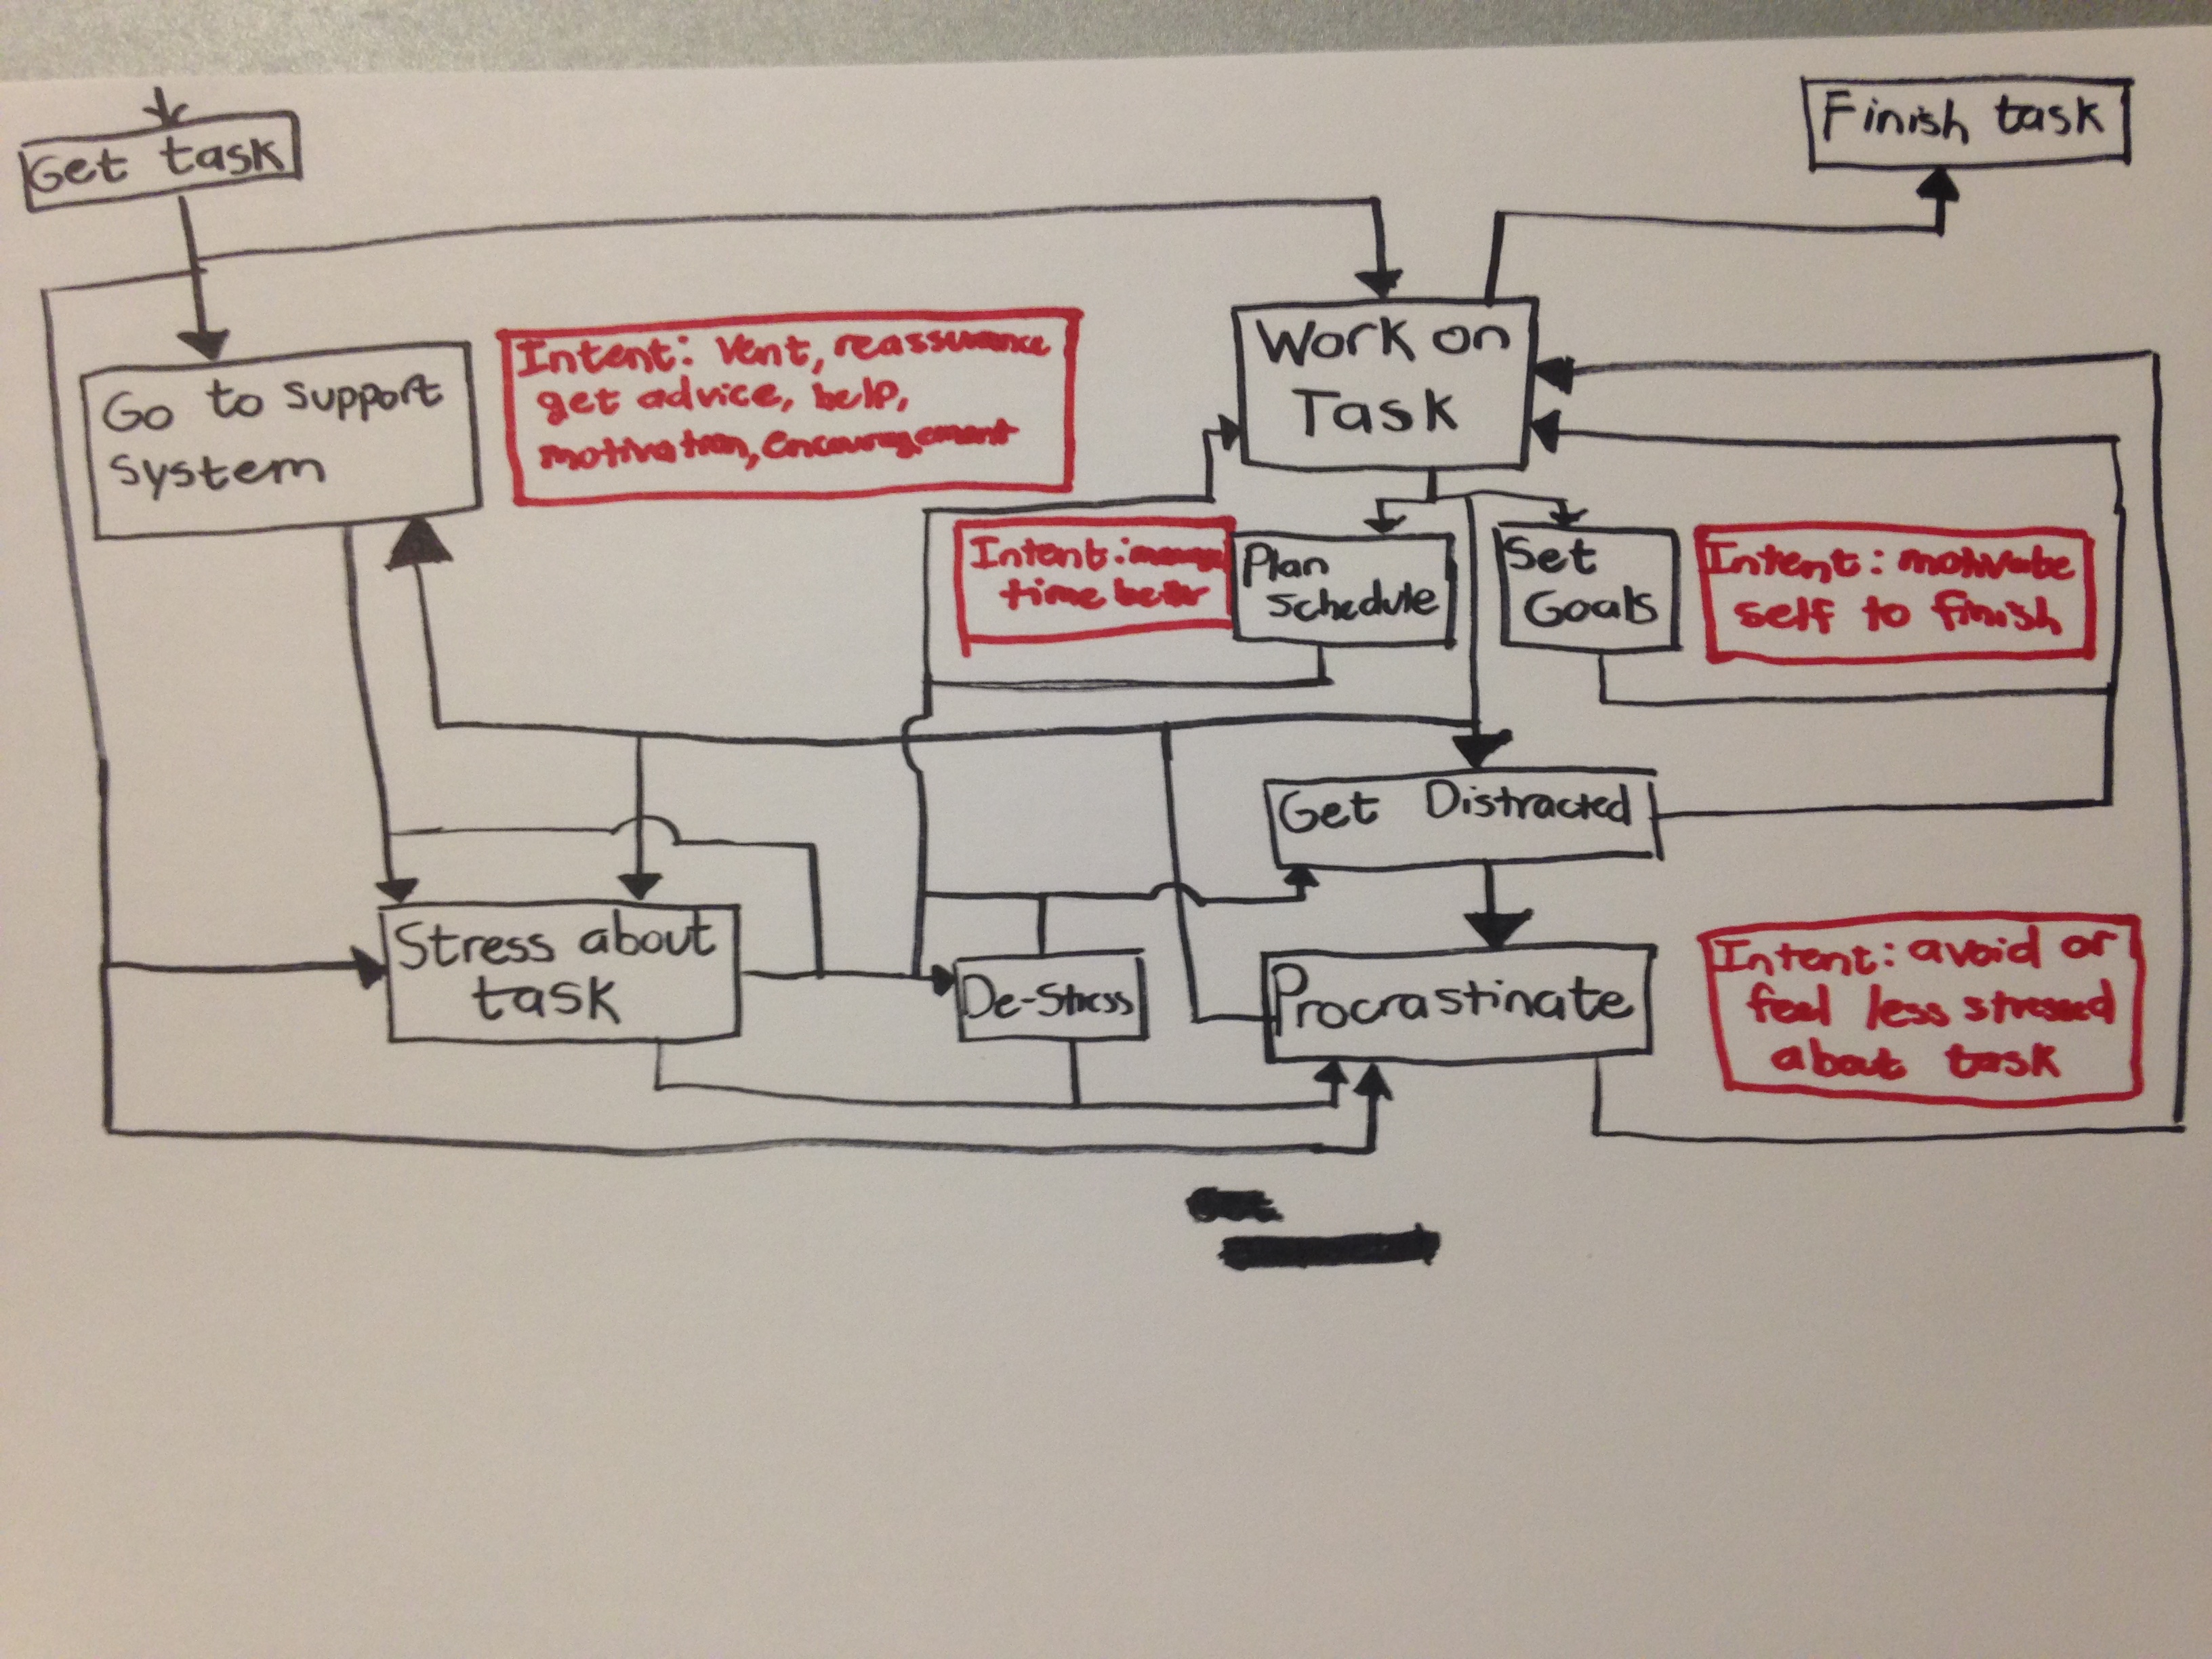 Get task
Finish task
Go to support
system
Intent: Vent, reassurance
get advice, help,
motivation, encouragement
Work on
Task
Intent: manage
time better
Plan
Schedule
Set
Goals
Intent: motivate
self to finish
Get Distracted
Stress about
task
De-Stress
Procrastinate
Intent: avoid or
feel less stressed
about task